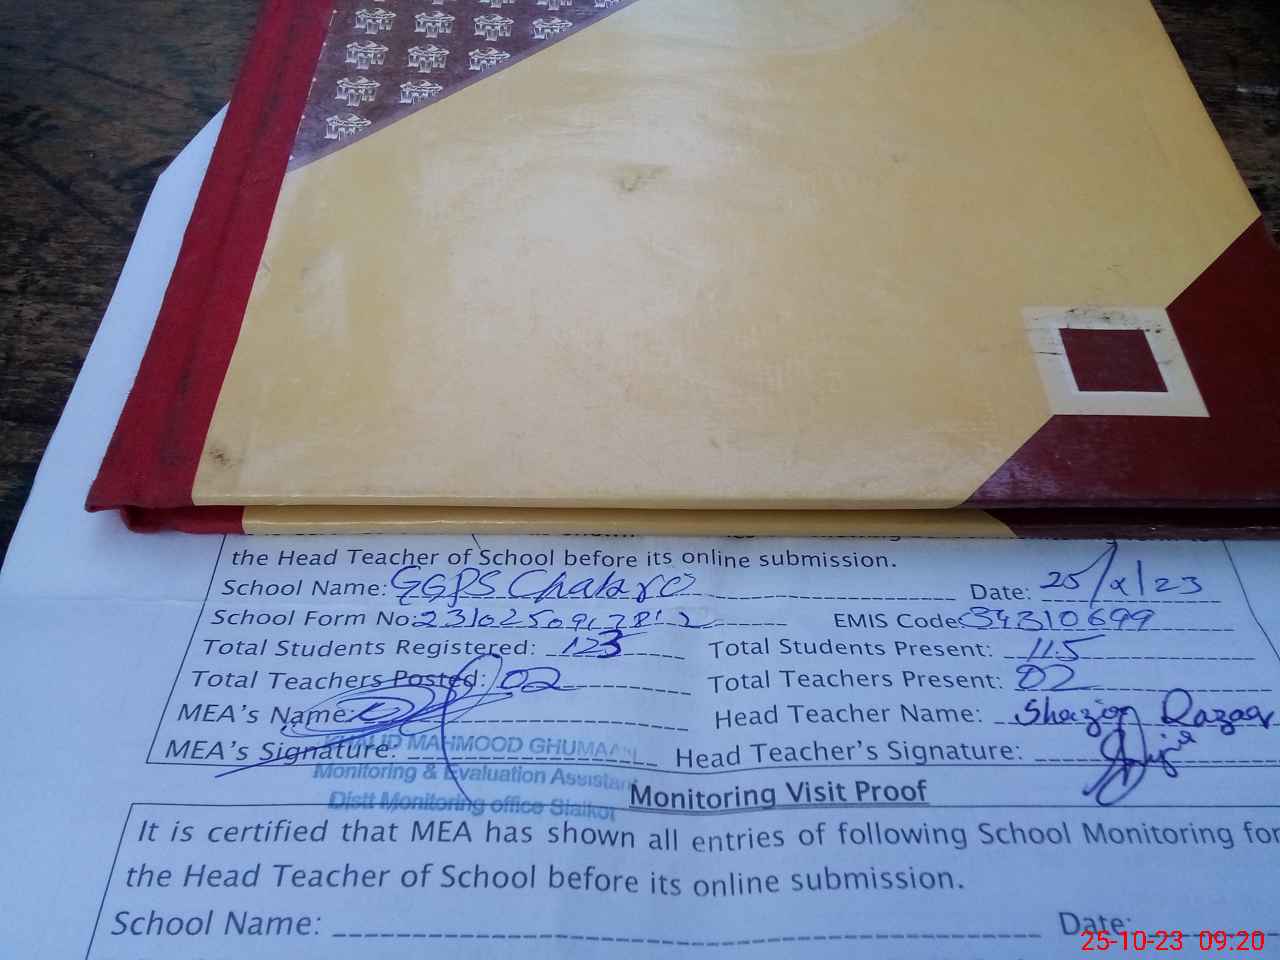 the Head Teacher of School before its online submission.
School Name: GGPS Chakro Date: 25/x/23
School Form No: EMIS Code: 34310699
Total Students Registered: 123 Total Students Present: 115
Total Teachers Posted: 02 Total Teachers Present: 02
MEA's Name: Head Teacher Name: Shazia Razaq
MEA's Signature: Head Teacher's Signature:
KHALID MAHMOOD GHUMAAN
Monitoring & Evaluation Assistant
Distt Monitoring office Sialkot
Monitoring Visit Proof
It is certified that MEA has shown all entries of following School Monitoring for
the Head Teacher of School before its online submission.
School Name: Date:
25-10-23 09:20